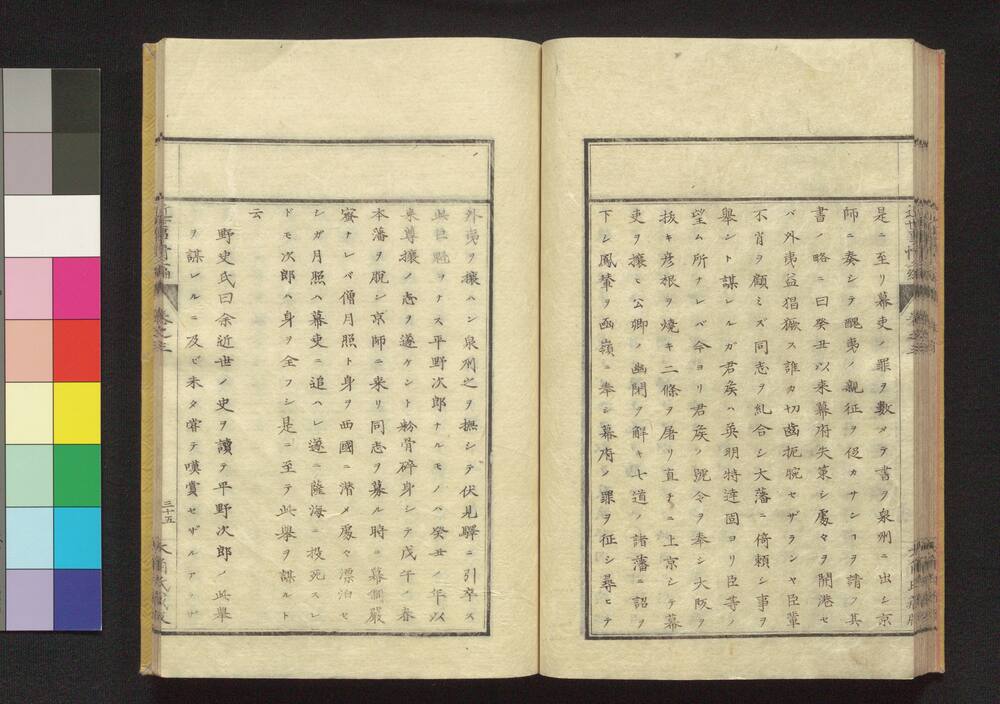 是ニ至リ幕吏ノ罪ヲ數メテ書ヲ泉州ニ出シ京
師ニ奏シテ醜夷ノ親征ヲ促カサンヿヲ請フ其
書ノ略ニ曰癸丑以来幕府失策シ處々ヲ開港セ
バ外夷益猖獗ス誰カ切齒扼腕セザランヤ臣輩
不肖ヲ顧ミズ同志ヲ糺合シ大藩ニ倚頼シ事ヲ
舉シト謀レルガ君矦ハ英明特達固ヨリ臣等ノ
望ム所ナレバ今ヨリ君矦ノ號令ヲ奉シ大阪ヲ
抜キ彦根ヲ燒キ二條ヲ屠リ直チニ上京シテ幕
吏ヲ攘ヒ公卿ノ幽閉ヲ解キ七道ノ諸藩ニ詔ヲ
下シ鳳輦ヲ函嶺ニ奉シ幕府ノ罪ヲ征シ尋ヒテ
外夷ヲ攘ハン泉州之ヲ撫シテ伏見驛ニ引卒ス
此巨魁ヲナス平野次郎ナルモノハ癸丑ノ年以
来尊攘ノ志ヲ遂ケント粉骨碎身シテ戊午ノ春
本藩ヲ脱シ京師ニ来リ同志ヲ募ル時ニ幕偵嚴
密ナレバ僧月照ト身ヲ西國ニ潜メ處々漂泊セ
シガ月照ハ幕吏ニ追ハレ遂ニ薩海ニ投死スレ
ドモ次郎ハ身ヲ全フシ是ニ至テ此舉ヲ謀ルト
云
野史氏曰余近世ノ史ヲ讀テ平野次郎ノ此舉
ヲ謀レルニ及ビ未タ嘗テ嘆賞セザルアラザ
卷之三
三十五